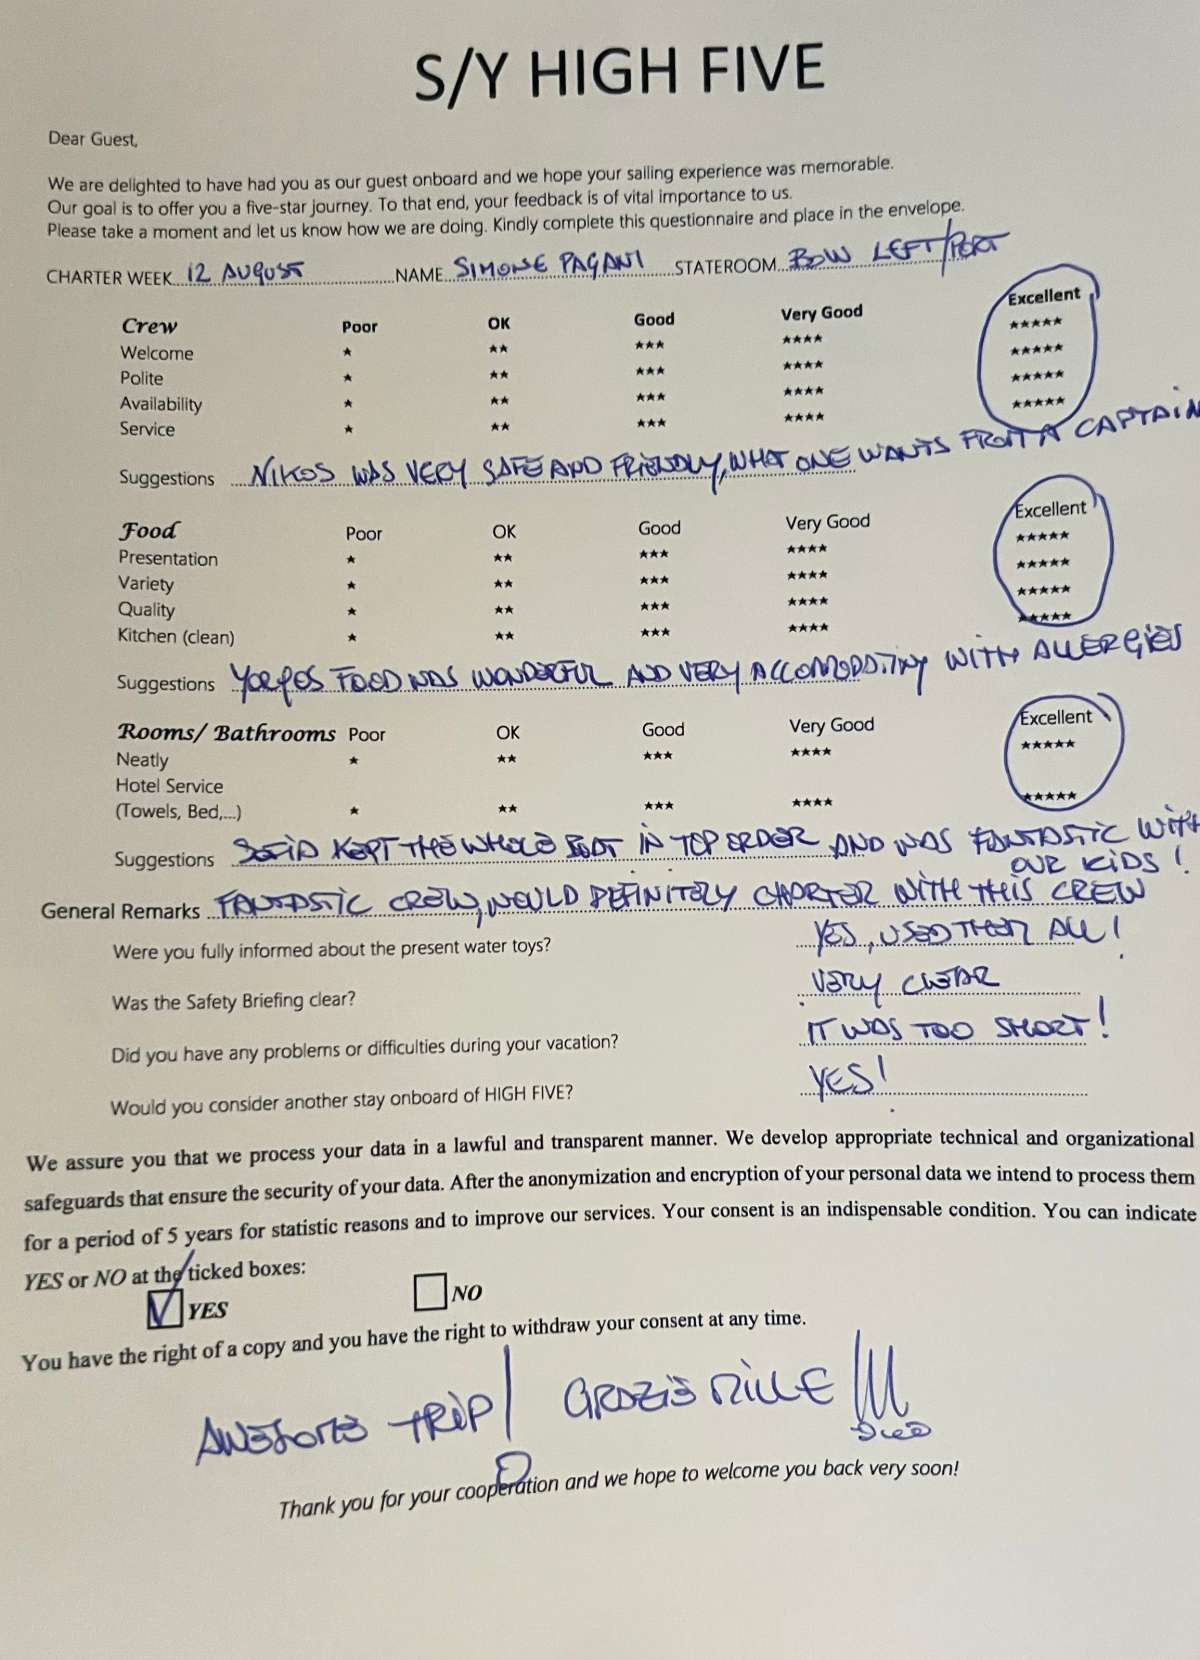 S/Y HIGH FIVE
Dear Guest,
We are delighted to have had you as our guest onboard and we hope your sailing experience was memorable.
Our goal is to offer you a five-star journey. To that end, your feedback is of vital importance to us.
Please take a moment and let us know how we are doing. Kindly complete this questionnaire and place in the envelope.
CHARTER WEEK 12 AUGUST NAME SIMONE PAGANI STATEROOM BOW LEFT/PORT
Crew Poor OK Good Very Good Excellent
Welcome ★ ★★ ★★★ ★★★★ ★★★★★
Polite ★ ★★ ★★★ ★★★★ ★★★★★
Availability ★ ★★ ★★★ ★★★★ ★★★★★
Service ★ ★★ ★★★ ★★★★ ★★★★★
Suggestions NIKOS WAS VERY SAFE AND FRIENDLY, WHAT ONE WANTS FROM A CAPTAIN
Food Poor OK Good Very Good Excellent
Presentation ★ ★★ ★★★ ★★★★ ★★★★★
Variety ★ ★★ ★★★ ★★★★ ★★★★★
Quality ★ ★★ ★★★ ★★★★ ★★★★★
Kitchen (clean) ★ ★★ ★★★ ★★★★ ★★★★★
Suggestions YORGOS FOOD WAS WONDERFUL AND VERY ACCOMODATING WITH ALLERGIES
Rooms/ Bathrooms Poor OK Good Very Good Excellent
Neatly ★ ★★ ★★★ ★★★★ ★★★★★
Hotel Service
(Towels, Bed,...) ★ ★★ ★★★ ★★★★ ★★★★★
Suggestions SOFIA KEPT THE WHOLE BOAT IN TOP ORDER AND WAS FANTASTIC WITH
OUR KIDS!
General Remarks FANTASTIC CREW, WOULD DEFINITELY CHARTER WITH THIS CREW
Were you fully informed about the present water toys? YES, USED THEM ALL!
Was the Safety Briefing clear? VERY CLEAR
Did you have any problems or difficulties during your vacation? IT WAS TOO SHORT!
Would you consider another stay onboard of HIGH FIVE? YES!
We assure you that we process your data in a lawful and transparent manner. We develop appropriate technical and organizational
safeguards that ensure the security of your data. After the anonymization and encryption of your personal data we intend to process them
for a period of 5 years for statistic reasons and to improve our services. Your consent is an indispensable condition. You can indicate
YES or NO at the ticked boxes:
YES NO
You have the right of a copy and you have the right to withdraw your consent at any time.
AWESOME TRIP! GRAZIE MILLE!!!
Thank you for your cooperation and we hope to welcome you back very soon!